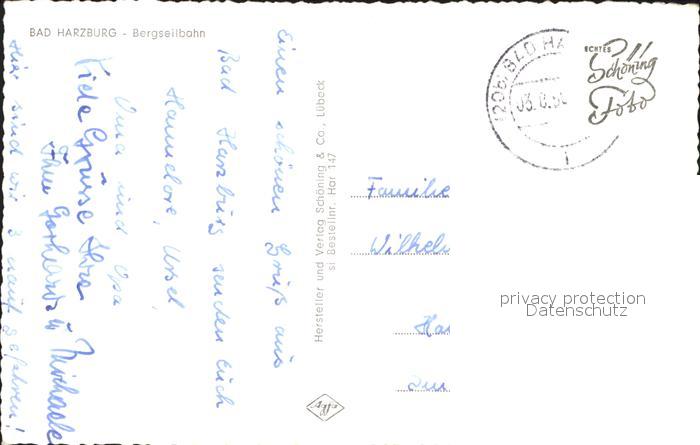 BAD HARZBURG - Bergseilbahn
Einen schönen Gruß aus
Bad Harzburg senden Euch
Hannelore, Ursel,
Oma und Opa
Viele Grüsse Ihre
Ihre Gerhard u
Hier sind wir 3 rauf gefahren!
Hersteller und Verlag Schöning & Co., Lübeck
si Bestellnr. Har 147
Agfa
(20b) BAD HA
03. 8. 5
i
ECHTES
Schöning
Foto
Familie
Wilhel
Ha
privacy protection
Datenschutz